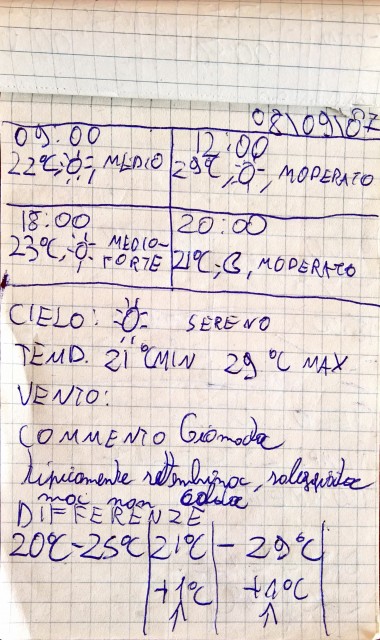 08\09\07
09:00 12:00
22°C, MEDIO 29°C, MODERATO
18:00 20:00
23°C, MEDIO-FORTE 21°C, MODERATO
CIELO: SERENO
TEMP. 21°C MIN 29°C MAX
VENTO:
COMMENTO Giornata
tipicamente settembrina, soleggiata
ma non calda
DIFFERENZE
20°C-25°C 21°C - 29°C
+1°C +4°C
↑ ↑